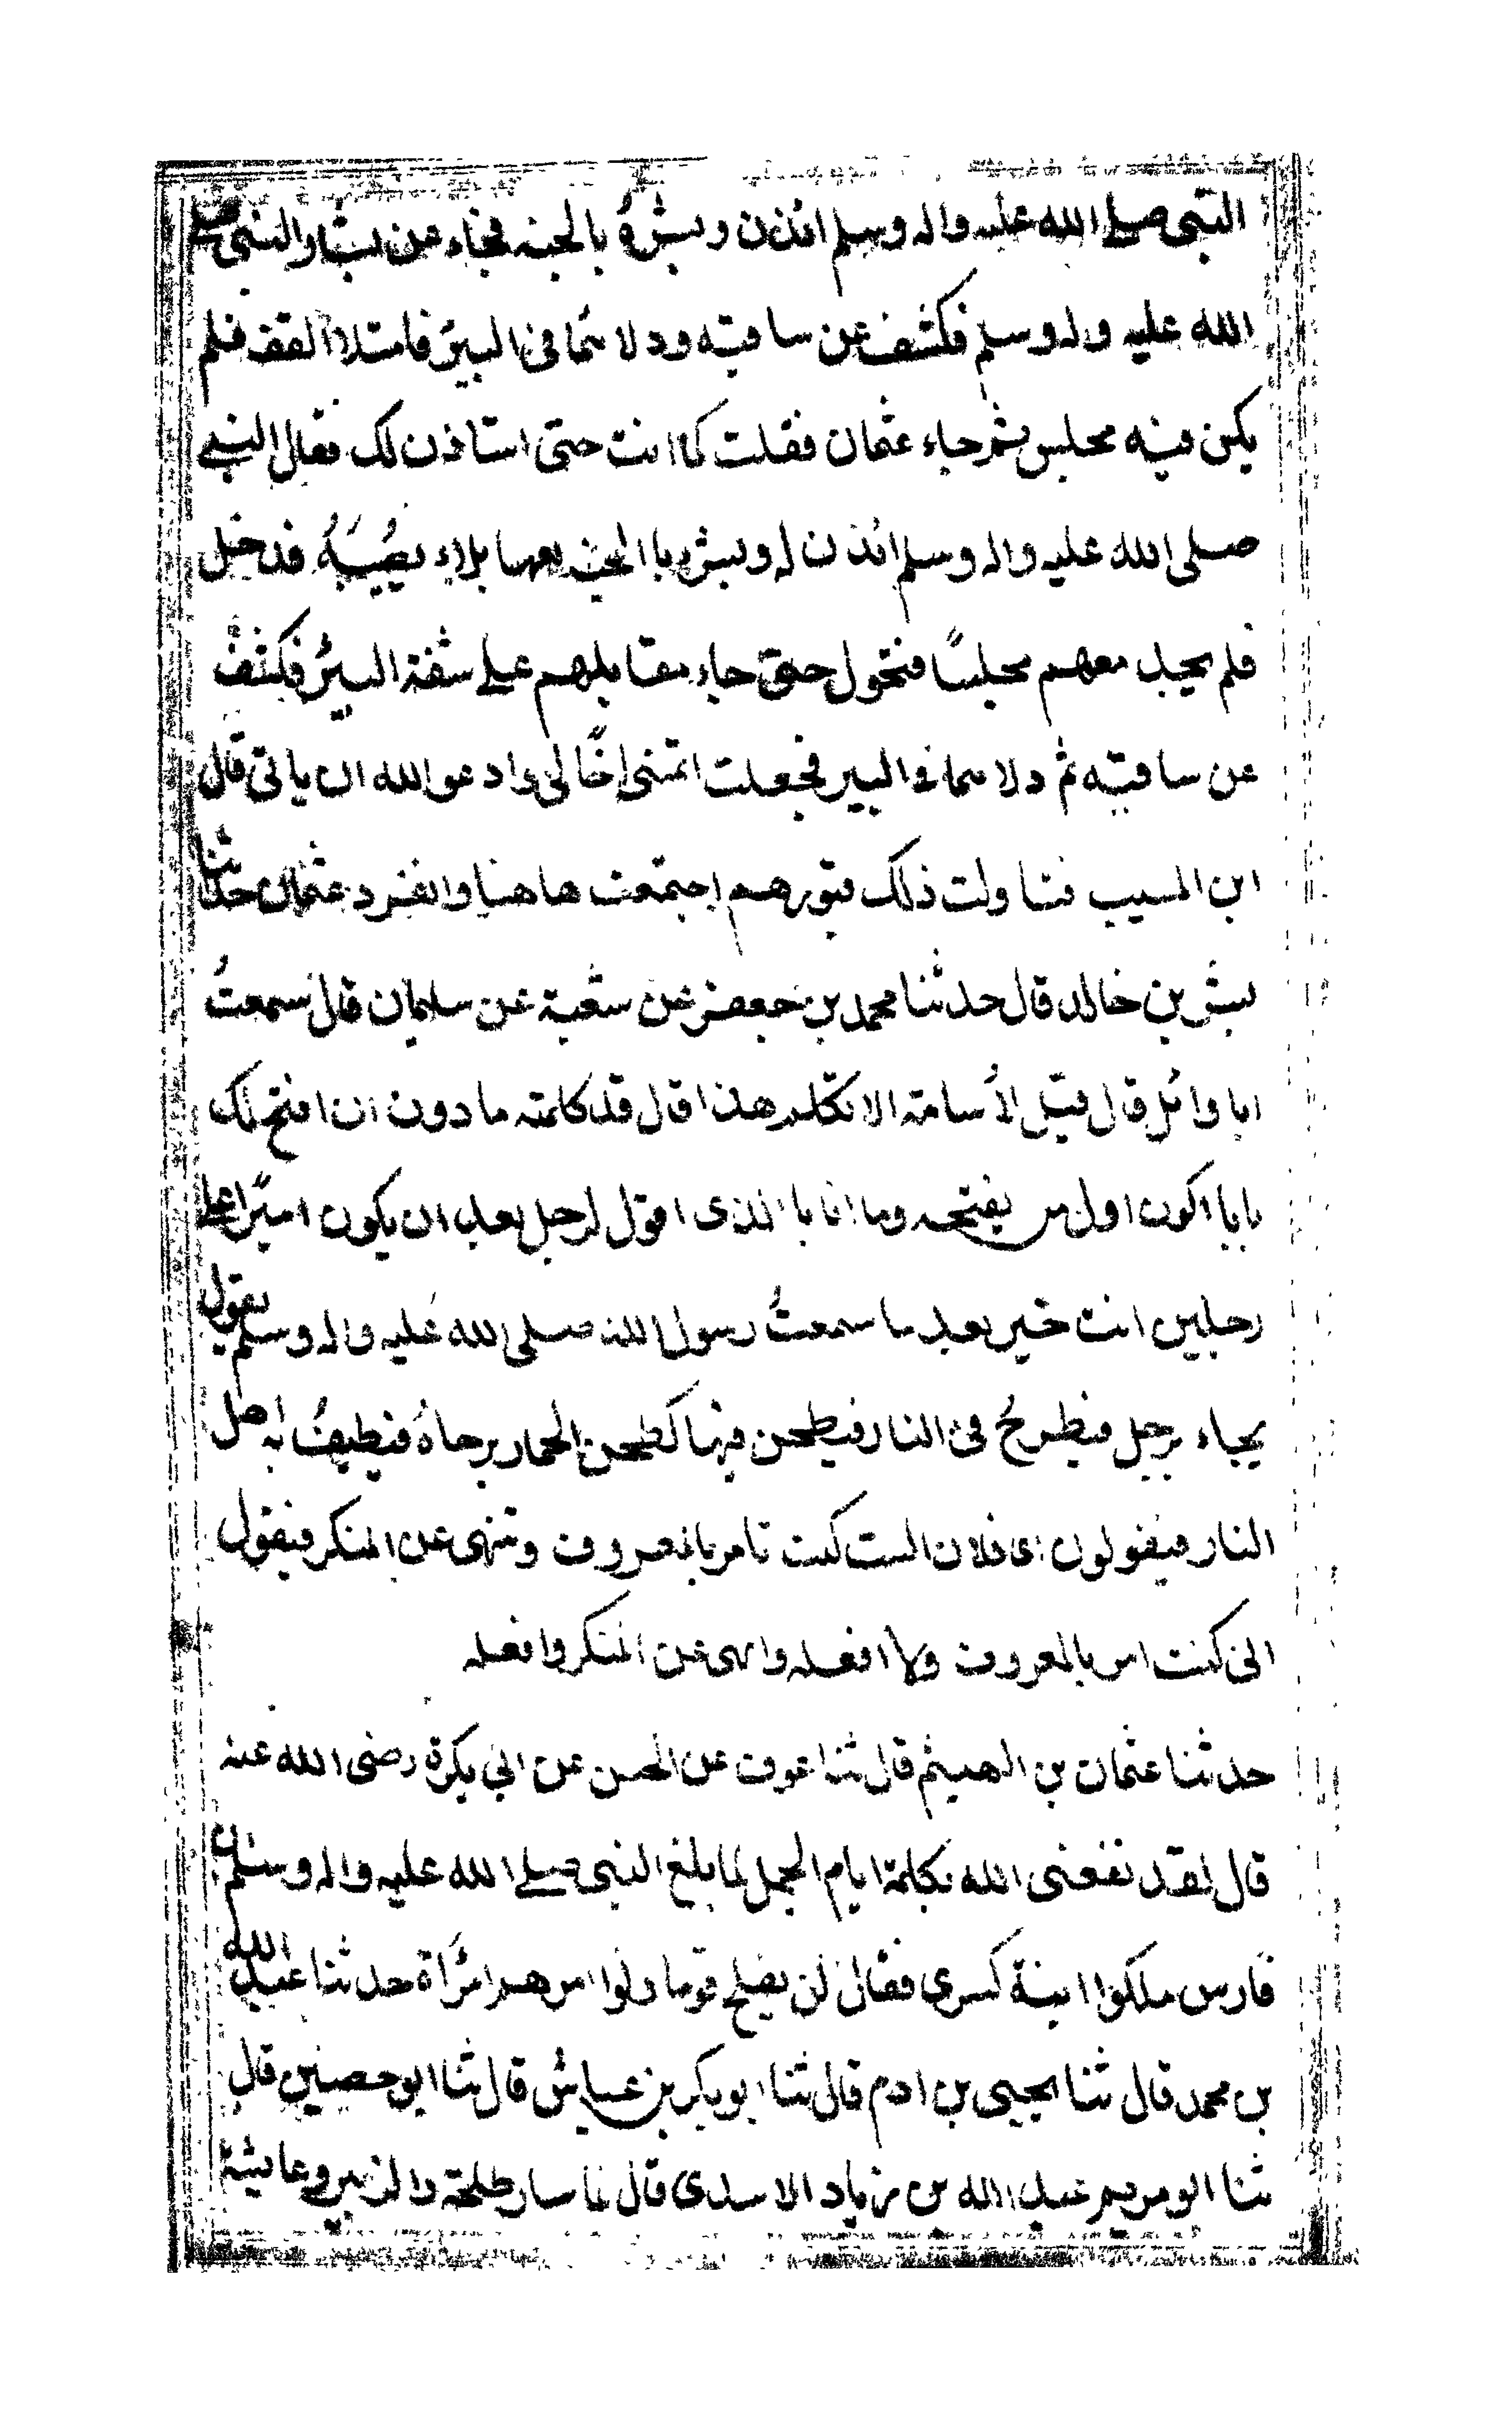 النبي صلے الله عليه واله وسلم ائذن وبشره بالجنه فجاء عن يسار النبي صلے
الله عليه واله وسلم فكشف عن ساقيه ودلاهما في البير فامتلا القف فلم
يكن فيه مجلس ثم جاء عثمان فقلت كما انت حتى استاذن لك فقال النبے
صلى الله عليه واله وسلم ائذن له وبشره باالجنه معها بلاء يصيبه فدخل
فلم يجد معهم مجلسًا فتحول حتى جاء مقابلهم علے شفة البير فكشف
عن ساقيه ثم دلاهما في البير فجعلت اتمنى اخًا لي وادعو الله ان ياتي قال
ابن المسيب فتاولت ذلك قبورهم اجتمعت هاهنا وانفرد عثمان حدثنا
بشر بن خالد قال حدثنا محمد بن جعفر عن شعبة عن سليمان قال سمعتُ
ابا وائل قال قيل لأسامة الا تكلم هذا قال قد كلمته ما دون ان افتح لك
بابا اكون اول من يفتحه وما انا باالذى اقول لرجل بعد ان يكون اميرًا على
رجلين انت خير بعد ما سمعتُ رسول الله صلى الله عليه واله وسلم يقول
يجاء برجل فيطرحُ في النار فيطحن فيها كطحن الحمار برحاه فيطيف به اهل
النار فيقولون اى فلان الست كنت تامر بالمعروف وتنهى عن المنكر فيقول
اني كنت امر بالمعروف ولا افعله وانهى عن المنكر وافعله
حدثنا عثمان بن الهيثم قال ثنا عوف عن الحسن عن ابي بكرة رضى الله عنه
قال لقد نفعنى الله بكلمة ايام الجمل لما بلغ النبي صلے الله عليه واله وسلم ان
فارس ملكوا ابنة كسرى فقال لن يفلح قوما ولوا امرهم امرأة حدثنا عبد الله
بن محمد قال ثنا يحيى بن ادم قال ثنا ابو بكر بن عياش قال ثنا ابو حصين قال
ثنا ابو مريم عبد الله بن زياد الاسدى قال لما سار طلحة والزبير وعايشة